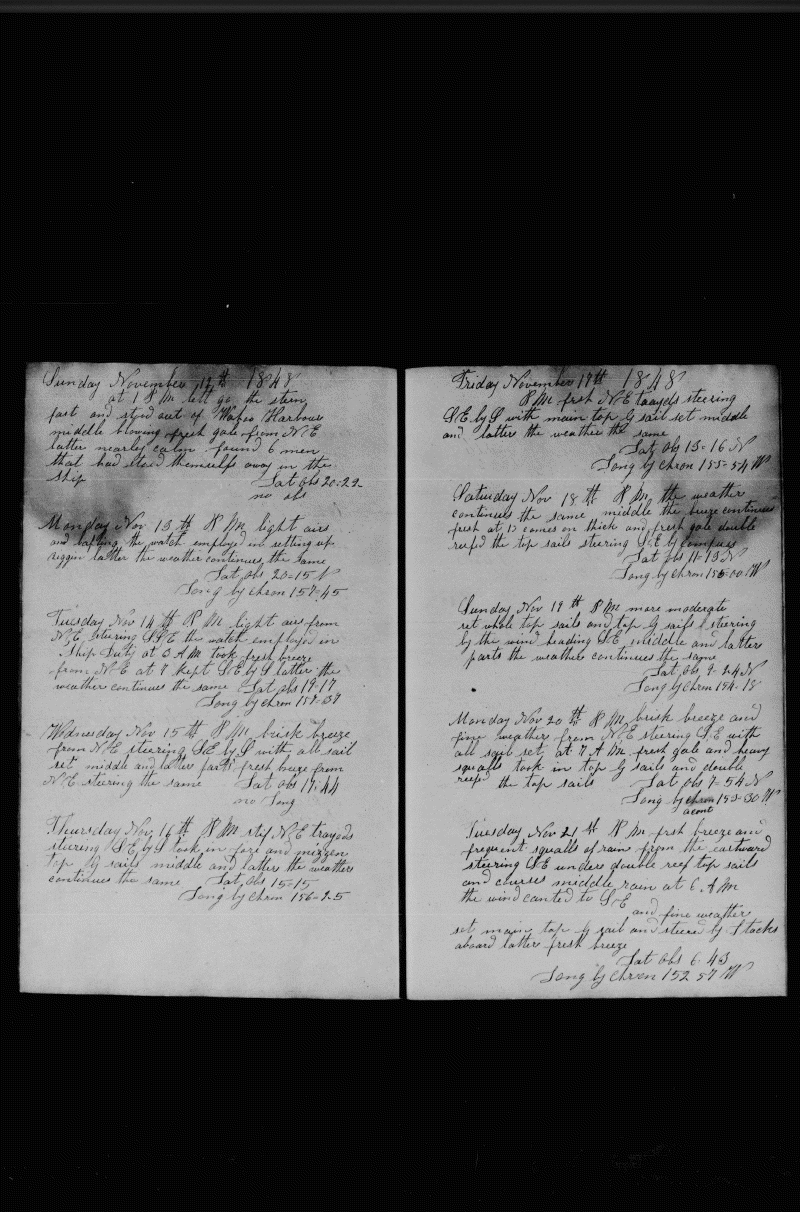 Sunday November 12th 1848
at 1 P M let go the stern
fast and stood out of Harbour
middle blowing fresh gale from N E
latter nearly calm found 6 men
that had stoed themselfs away in the
ship Lat obs 20-22
no obs
Monday Nov 13th P M light airs
and bafling the watch employed in setting up
riggin latter the weather continues the same
Lat obs 20-15 N
Long by Chron 157-45
Tuesday Nov 14th P M light airs from
N,E, steering S S E the watch employed in
ship Duty at 3 A M took fresh breeze
from N E at 7 kept S E by S latter the
weather continues the same Lat obs 19-17
Long by Chron 157-37
Wednesday Nov 15th P M brisk breeze
from N E steering S,E by S with all sail
set middle and latter parts fresh breeze from
N E steering the same Lat obs 17-44
no Long
Thursday Nov, 16th P M stif N,E trayeds
steering S,E, by S took in fore and mizzen
top G sails middle and latter the weather
continues the same Lat, obs 15-15
Long by Chron 156-25
Friday November 17th 1848
P M fresh N E trayeds steering
S E by S with main top G sail set middle
and latter the weather the same
Lat obs 13-16 N
Long by Chron 155-54 W
Saturday Nov 18th P M, the weather
continues the same middle the breeze continues
fresh at 12 comes on thick and fresh gale double
reefed the top sails steering S E by compass
Lat obs 11-13 N
Long by Chron 155-00 W
Sunday Nov 19th P M more moderate
set whole top sails and top G sails steering
by the wind heading S E middle and latter
parts the weather continues the same
Lat obs 9-24 N
Long by Chron 154-18
Monday Nov 20th P M, brisk breeze and
fine weather from N,E steering S,E with
all sail set, at 7 A M, fresh gale and heavy
squalls took in top G sails and double
reefed the top sails Lat obs 7-54 N
Long by Chron 153-30 W
acont
Tuesday Nov 21st P M fresh breeze and
frequent squalls of rain from the eastward
steering S E under double reef top sails
and courses middle rain at 6 A M
the wind canted to S,E
and fine weather
set main top G sail and steered by 
aboard latter fresh breeze
Lat obs 6-43
Long by Chron 152 57 W